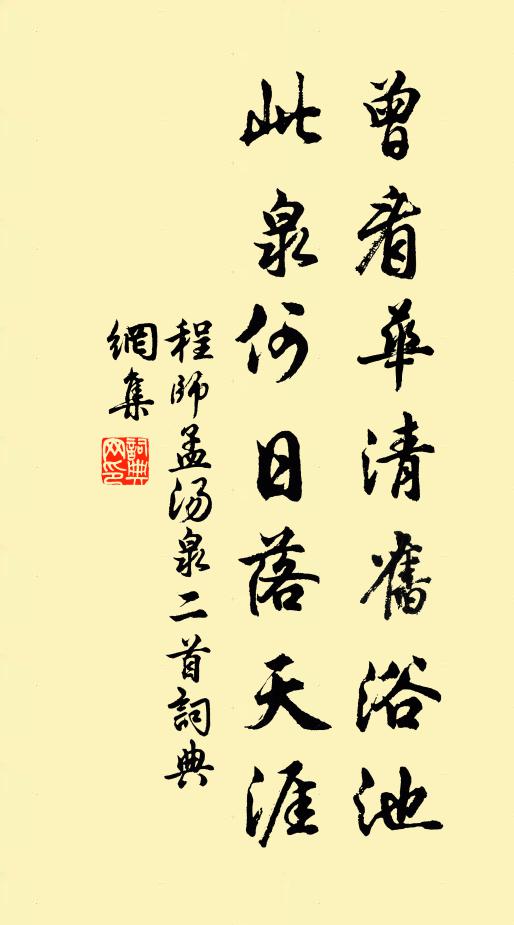 曾看華清舊浴池
此泉何日落天涯
程師孟湯泉二首詞典
網集
詞典網印